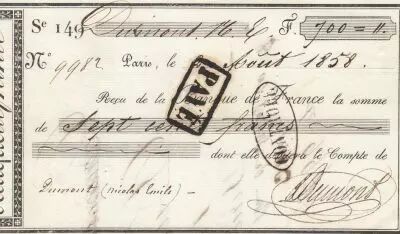 Se 149 Dumont, N. E. F. 700 = "
No 9982 Paris, le Aout 1858.
PAYÉ
Reçu de la Banque de France la somme
de Sept cent francs
dont elle débitera le Compte de
Dumont (Nicolas Emile)
Dumont